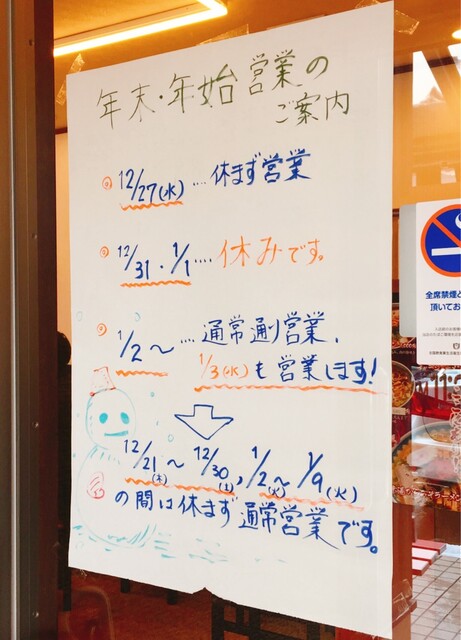 年末・年始営業の
ご案内
12/27(水)....休まず営業
12/31・1/1....休みです。
1/2〜...通常通り営業、
1/3(水)も営業します!
12/21(木)〜12/30(土)、1/2(火)〜1/9(火)
の間は休まず通常営業です。
全席禁煙と
頂いてお